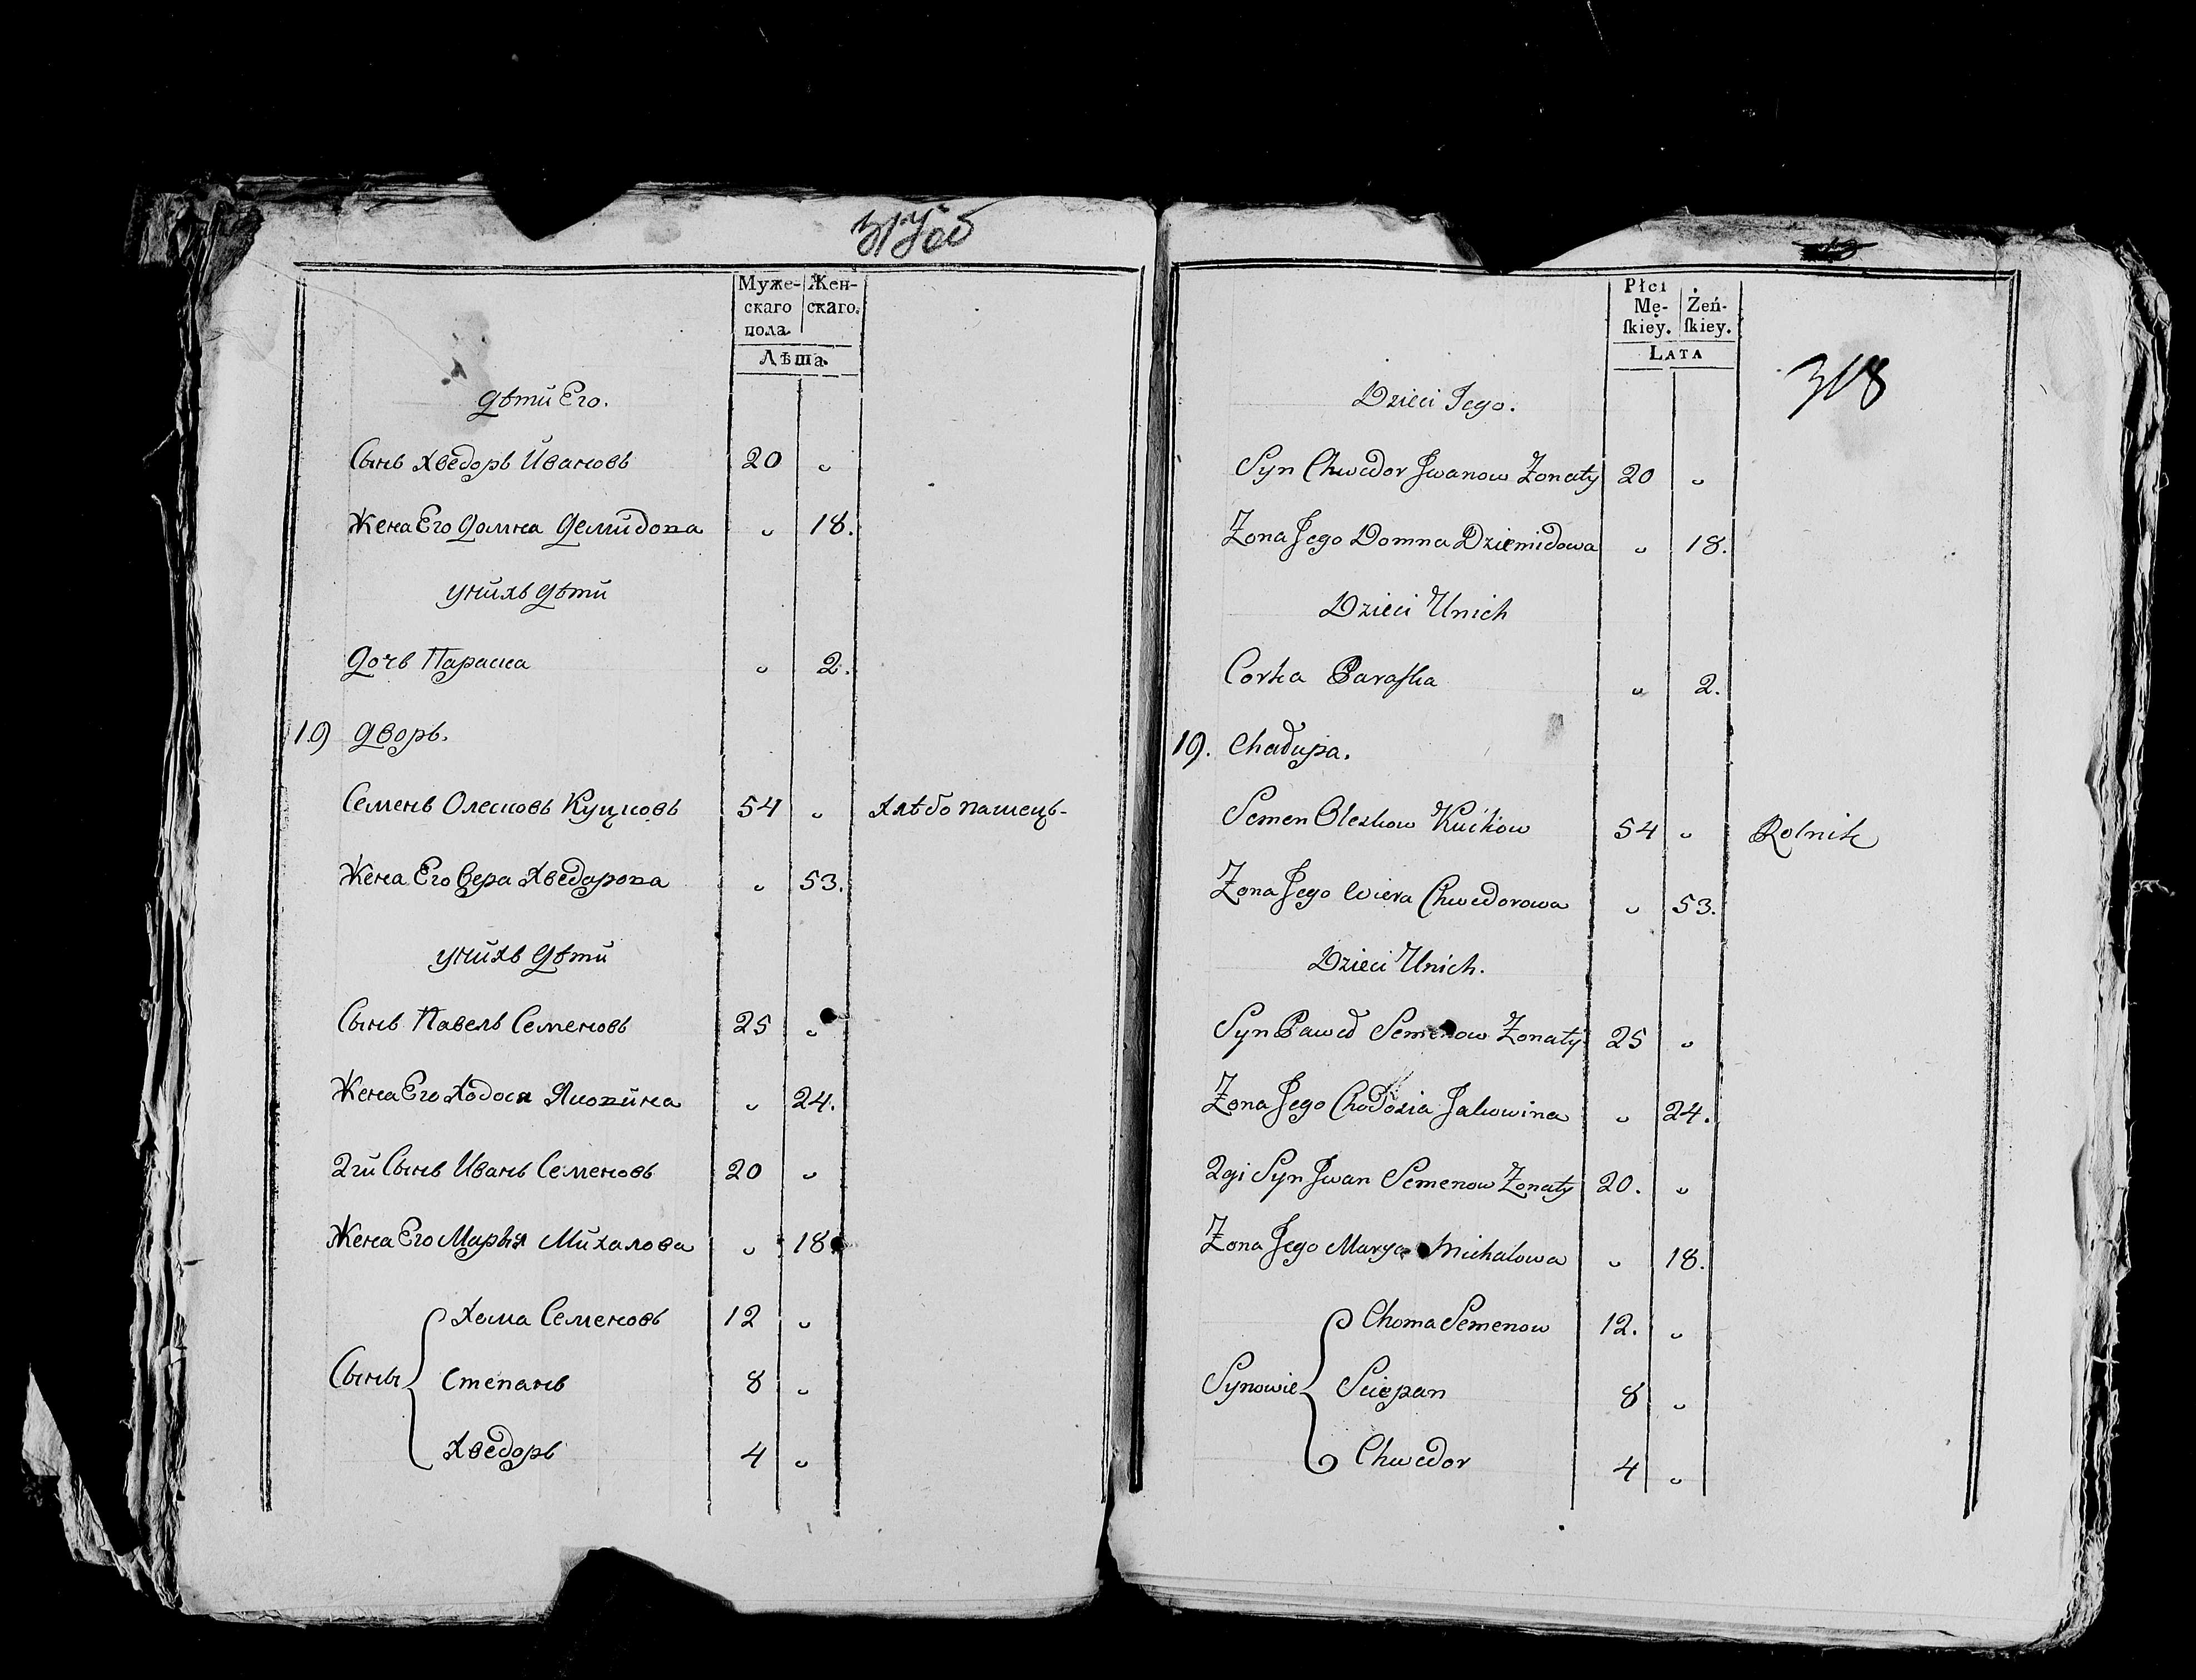 317об
Муже- Жен-
скаго скаго.
пола.
Лѣта.
дѣти Его.
Сынъ Хведоръ Ивановъ 20 „
Жена Его Домна Демидова „ 18.
унихъ дѣти
Дочь Параска „ 2.
19) дворъ.
Семенъ Олесковъ Куцковъ 54 „ хлѣбопашецъ-
Жена Его Вера Хведарова „ 53.
унихъ дѣти
Сынъ Павелъ Семеновъ 25 „
Жена Его Ходося Яковина „ 24.
2гй Сынъ Иванъ Семеновъ 20 „
Жена Его Марья Михалова „ 18
Сыны
Хома Семеновъ 12 „
Степанъ 8 „
Хведоръ 4 „
Płci
Mę- Żeń-
ſkiey. ſkiey.
LATA
318
Dzieci Jego.
Syn Chwedor Jwanow Żonaty 20 „
Żona Jego Domna Dziemidowa „ 18.
Dzieci Unich
Corka Paraſka „ 2.
19. Chałupa.
Semen Oleskow Kućkow 54 „ Rolnik
Żona Jego Wiera Chwedorowa „ 53.
Dzieci Unich.
Syn Paweł Semenow Żonaty 25 „
Żona Jego Chodosia Jakowina „ 24.
2gi Syn Jwan Semenow Żonaty 20. „
Żona Jego Marya Michałowa „ 18.
Synowie
Choma Semenow 12. „
Sciepan 8 „
Chwedor 4 „